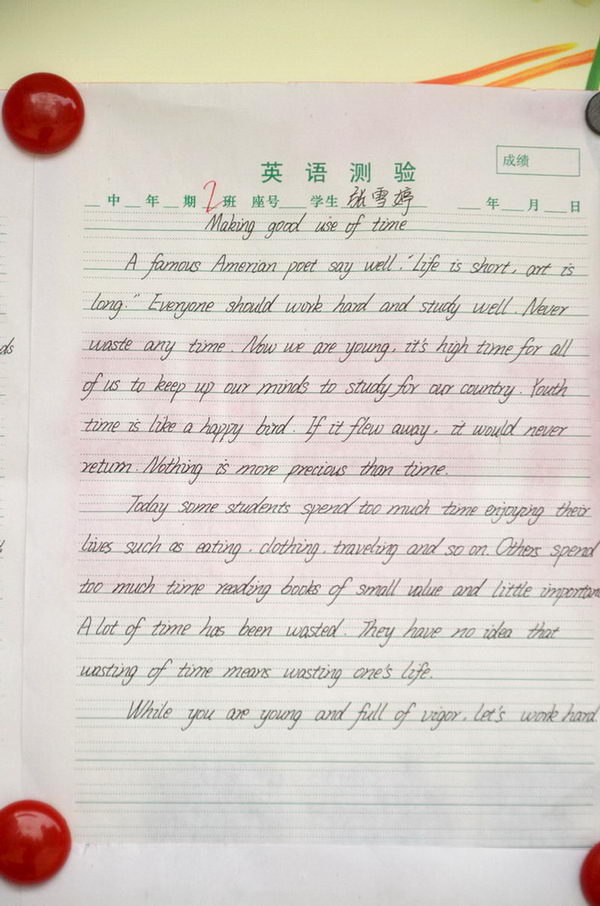 英语测验
成绩
中 年 期 2 班 座号 学生 张雪婷 年 月 日
Making good use of time
A famous Amerian poet say well, "Life is short, art is
long." Everyone should work hard and study well. Never
waste any time. Now we are young, it's high time for all
of us to keep up our minds to study for our country. Youth
time is like a happy bird. If it flew away, it would never
return. Nothing is more precious than time.
Today some students spend too much time enjoying their
lives such as eating, clothing, traveling and so on. Others spend
too much time reading books of small value and little importan
A lot of time has been wasted. They have no idea that
wasting of time means wasting one's life.
While you are young and full of vigor, let's work hard.
ds